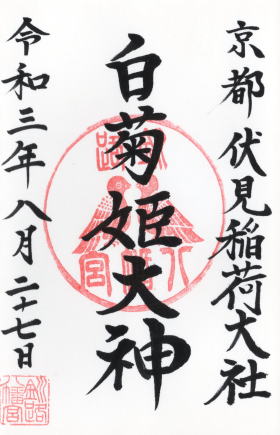 京都伏見稲荷大社
白菊姫大神
令和三年八月二十七日